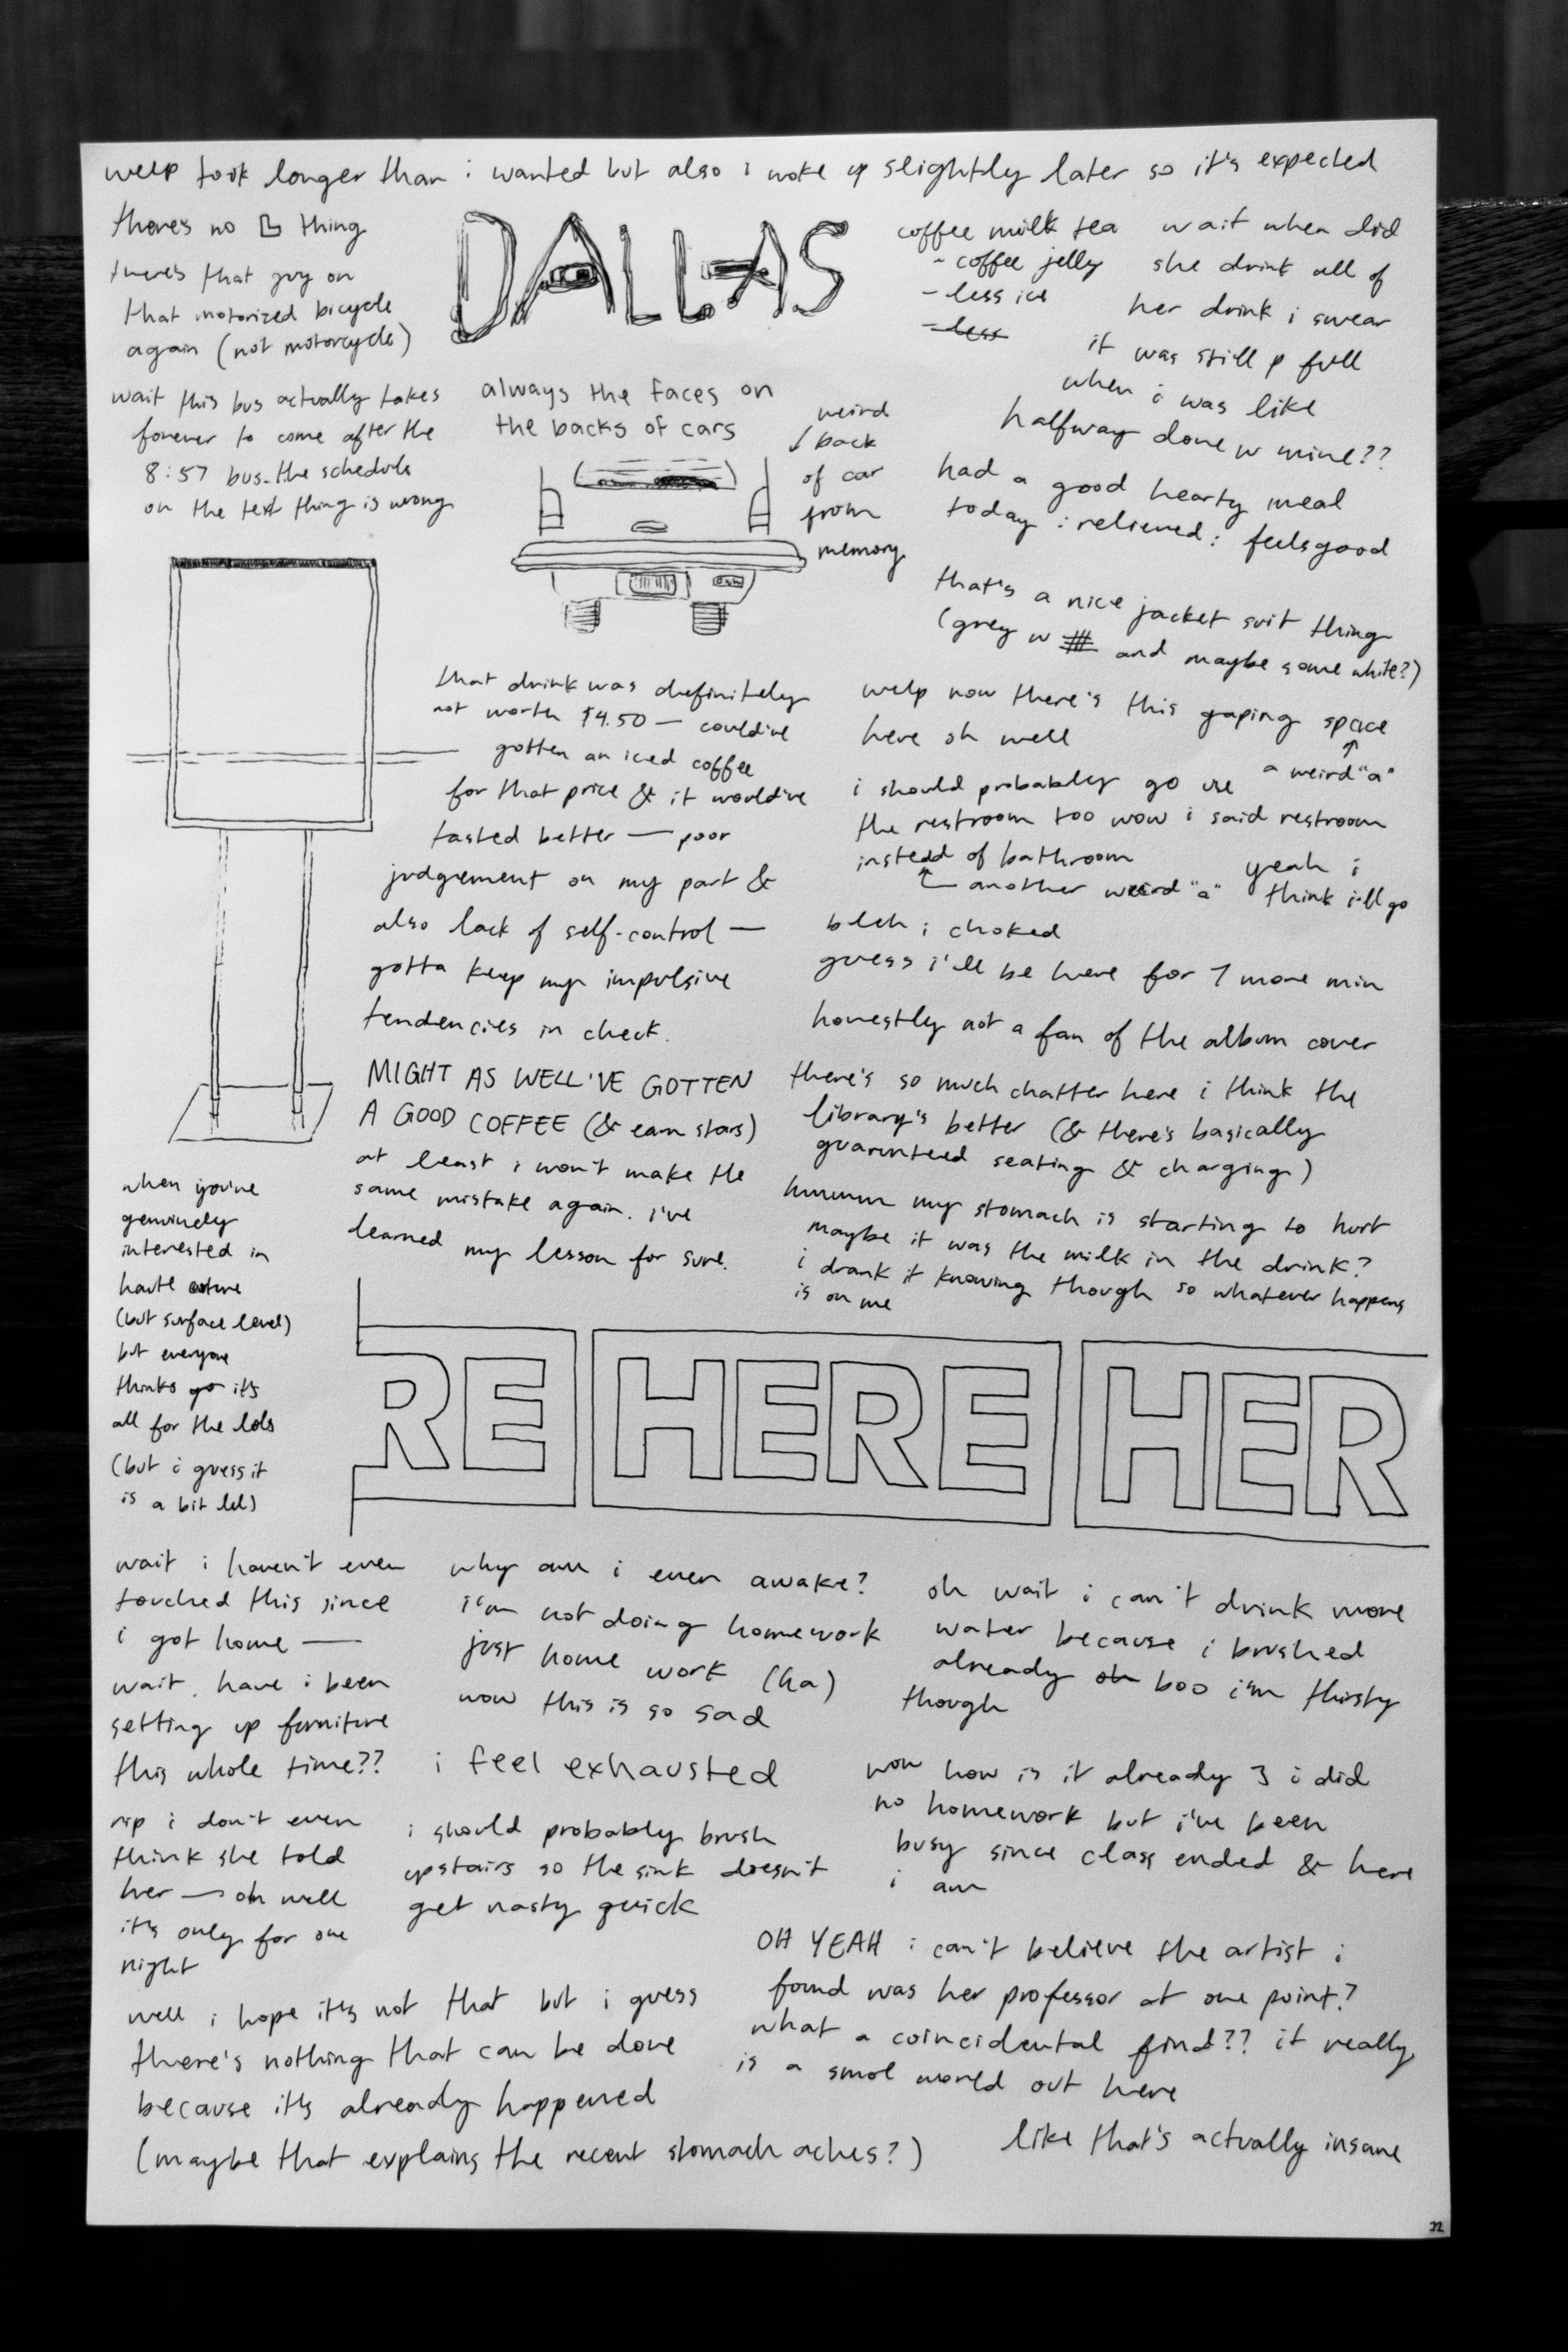 welp took longer than i wanted but also i woke up slightly later so it's expected
there's no thing
there's that guy on
that motorized bicycle
again (not motorcycle)
wait this bus actually takes
forever to come after the
8:57 bus. the schedule
on the text thing is wrong
DALLAS
always the faces on
the backs of cars
weird
back
of car
from
memory
coffee milk tea
- coffee jelly
- less ice
- less
wait when did
she drink all of
her drink i swear
it was still p full
when i was like
halfway done w mine??
had a good hearty meal
today i relieved i feelsgood
that's a nice jacket suit thing
(grey w and maybe some white?)
that drink was definitely
not worth $4.50 — could've
gotten an iced coffee
for that price & it would've
tasted better — poor
judgement on my part &
also lack of self-control —
gotta keep my impulsive
tendencies in check.
MIGHT AS WELL'VE GOTTEN
A GOOD COFFEE (& earn stars)
at least i won't make the
same mistake again. i've
learned my lesson for sure.
welp now there's this gaping space
here oh well
a weird "a"
i should probably go use
the restroom too wow i said restroom
instead of bathroom
another weird "a"
yeah i
think i'll go
bleh i choked
guess i'll be here for 7 more min
honestly not a fan of the album cover
there's so much chatter here i think the
library's better (& there's basically
guarunteed seating & charging)
hmmmm my stomach is starting to hurt
maybe it was the milk in the drink?
i drank it knowing though so whatever happens
is on me
when you're
genuinely
interested in
haute
(but surface level)
but everyone
thinks it's
all for the lols
(but i guess it
is a bit lol)
RE HERE HER
wait i haven't even
touched this since
i got home —
wait, have i been
setting up furniture
this whole time??
rip i don't even
think she told
her — oh well
it's only for one
night
why am i even awake?
i'm not doing homework
just home work (ha)
wow this is so sad
i feel exhausted
i should probably brush
upstairs so the sink doesn't
get nasty quick
oh wait i can't drink more
water because i brushed
already oh boo i'm thirsty
though
wow how is it already 3 i did
no homework but i've been
busy since class ended & here
i am
well i hope it's not that but i guess
there's nothing that can be done
because it's already happened
(maybe that explains the recent stomach aches?)
OH YEAH i can't believe the artist i
found was her professor at one point?
what a coincidental find?? it really
is a smol world out here
like that's actually insane